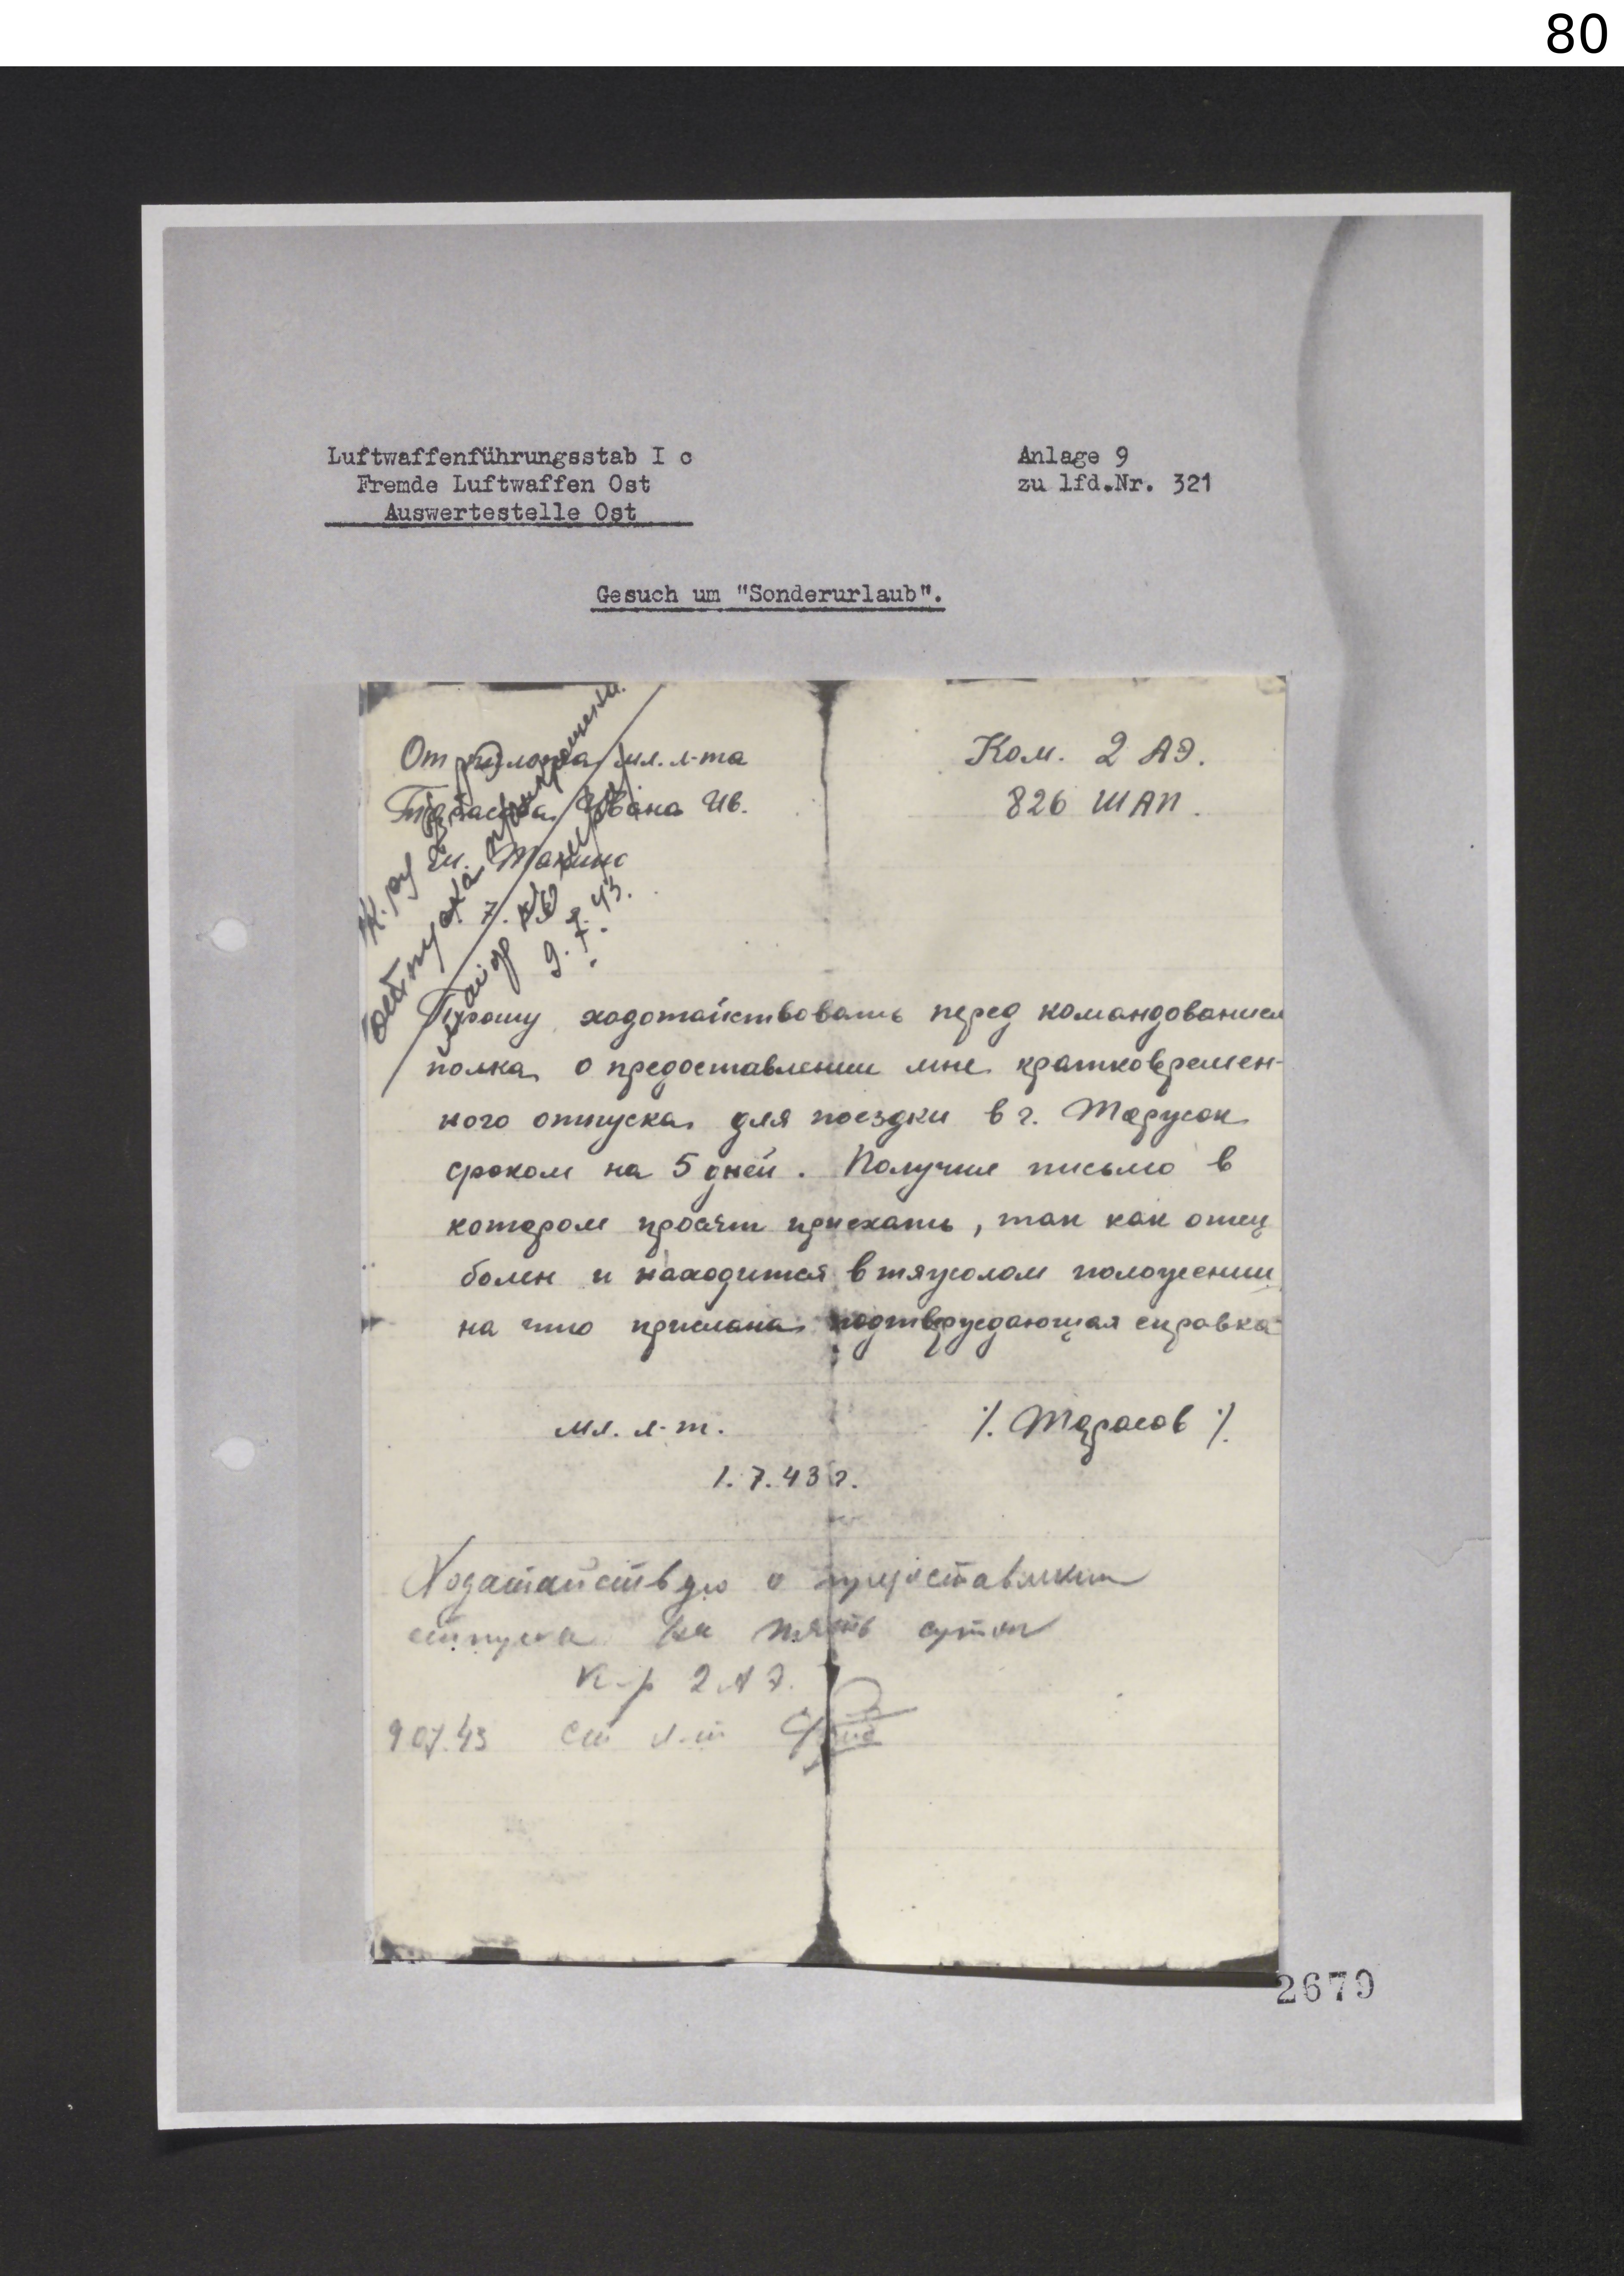 80
Luftwaffenführungsstab I c
Fremde Luftwaffen Ost
Auswertestelle Ost
Anlage 9
zu lfd.Nr. 321
Gesuch um "Sonderurlaub".
От пилота мл. л-та
Тарасова Ивана Ив.
Ком. 2 АЭ.
826 ШАП.
отпуска
9.7.43.
Прошу ходотайствовать перед командованием
полка о предоставлении мне кратковремен-
ного отпуска для поездки в г.
сроком на 5 дней. Получил письмо в
котором просят приехать, так как отец
болен и находится в тяжолом положении
на что прислана подтверждающая справка
мл. л-т. ./. Тарасов ./.
1.7.43 г.
Ходатайствую о предоставлении
отпуска на пять суток
К-р 2 АЭ.
9 07.43 Ст л-т
2679